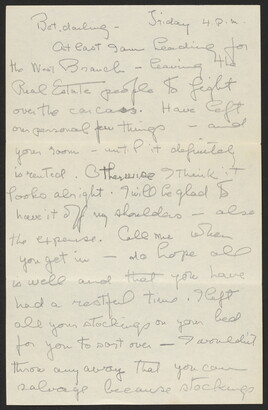 Bob, darling - Friday 4 P.M.
At last I am heading for
the West Branch - leaving the
Real Estate people to fight
over the carcass. Have left
our personal few things - and
your room - until it definitely
is rented. Otherwise I think it
looks alright. I will be glad to
have it off my shoulders - also
the expense. Call me when
you get in - do hope all
is well and that you have
had a restful time. I left
all your stockings on your bed
for you to sort over - I wouldn't
throw any away that you can
salvage because stockings